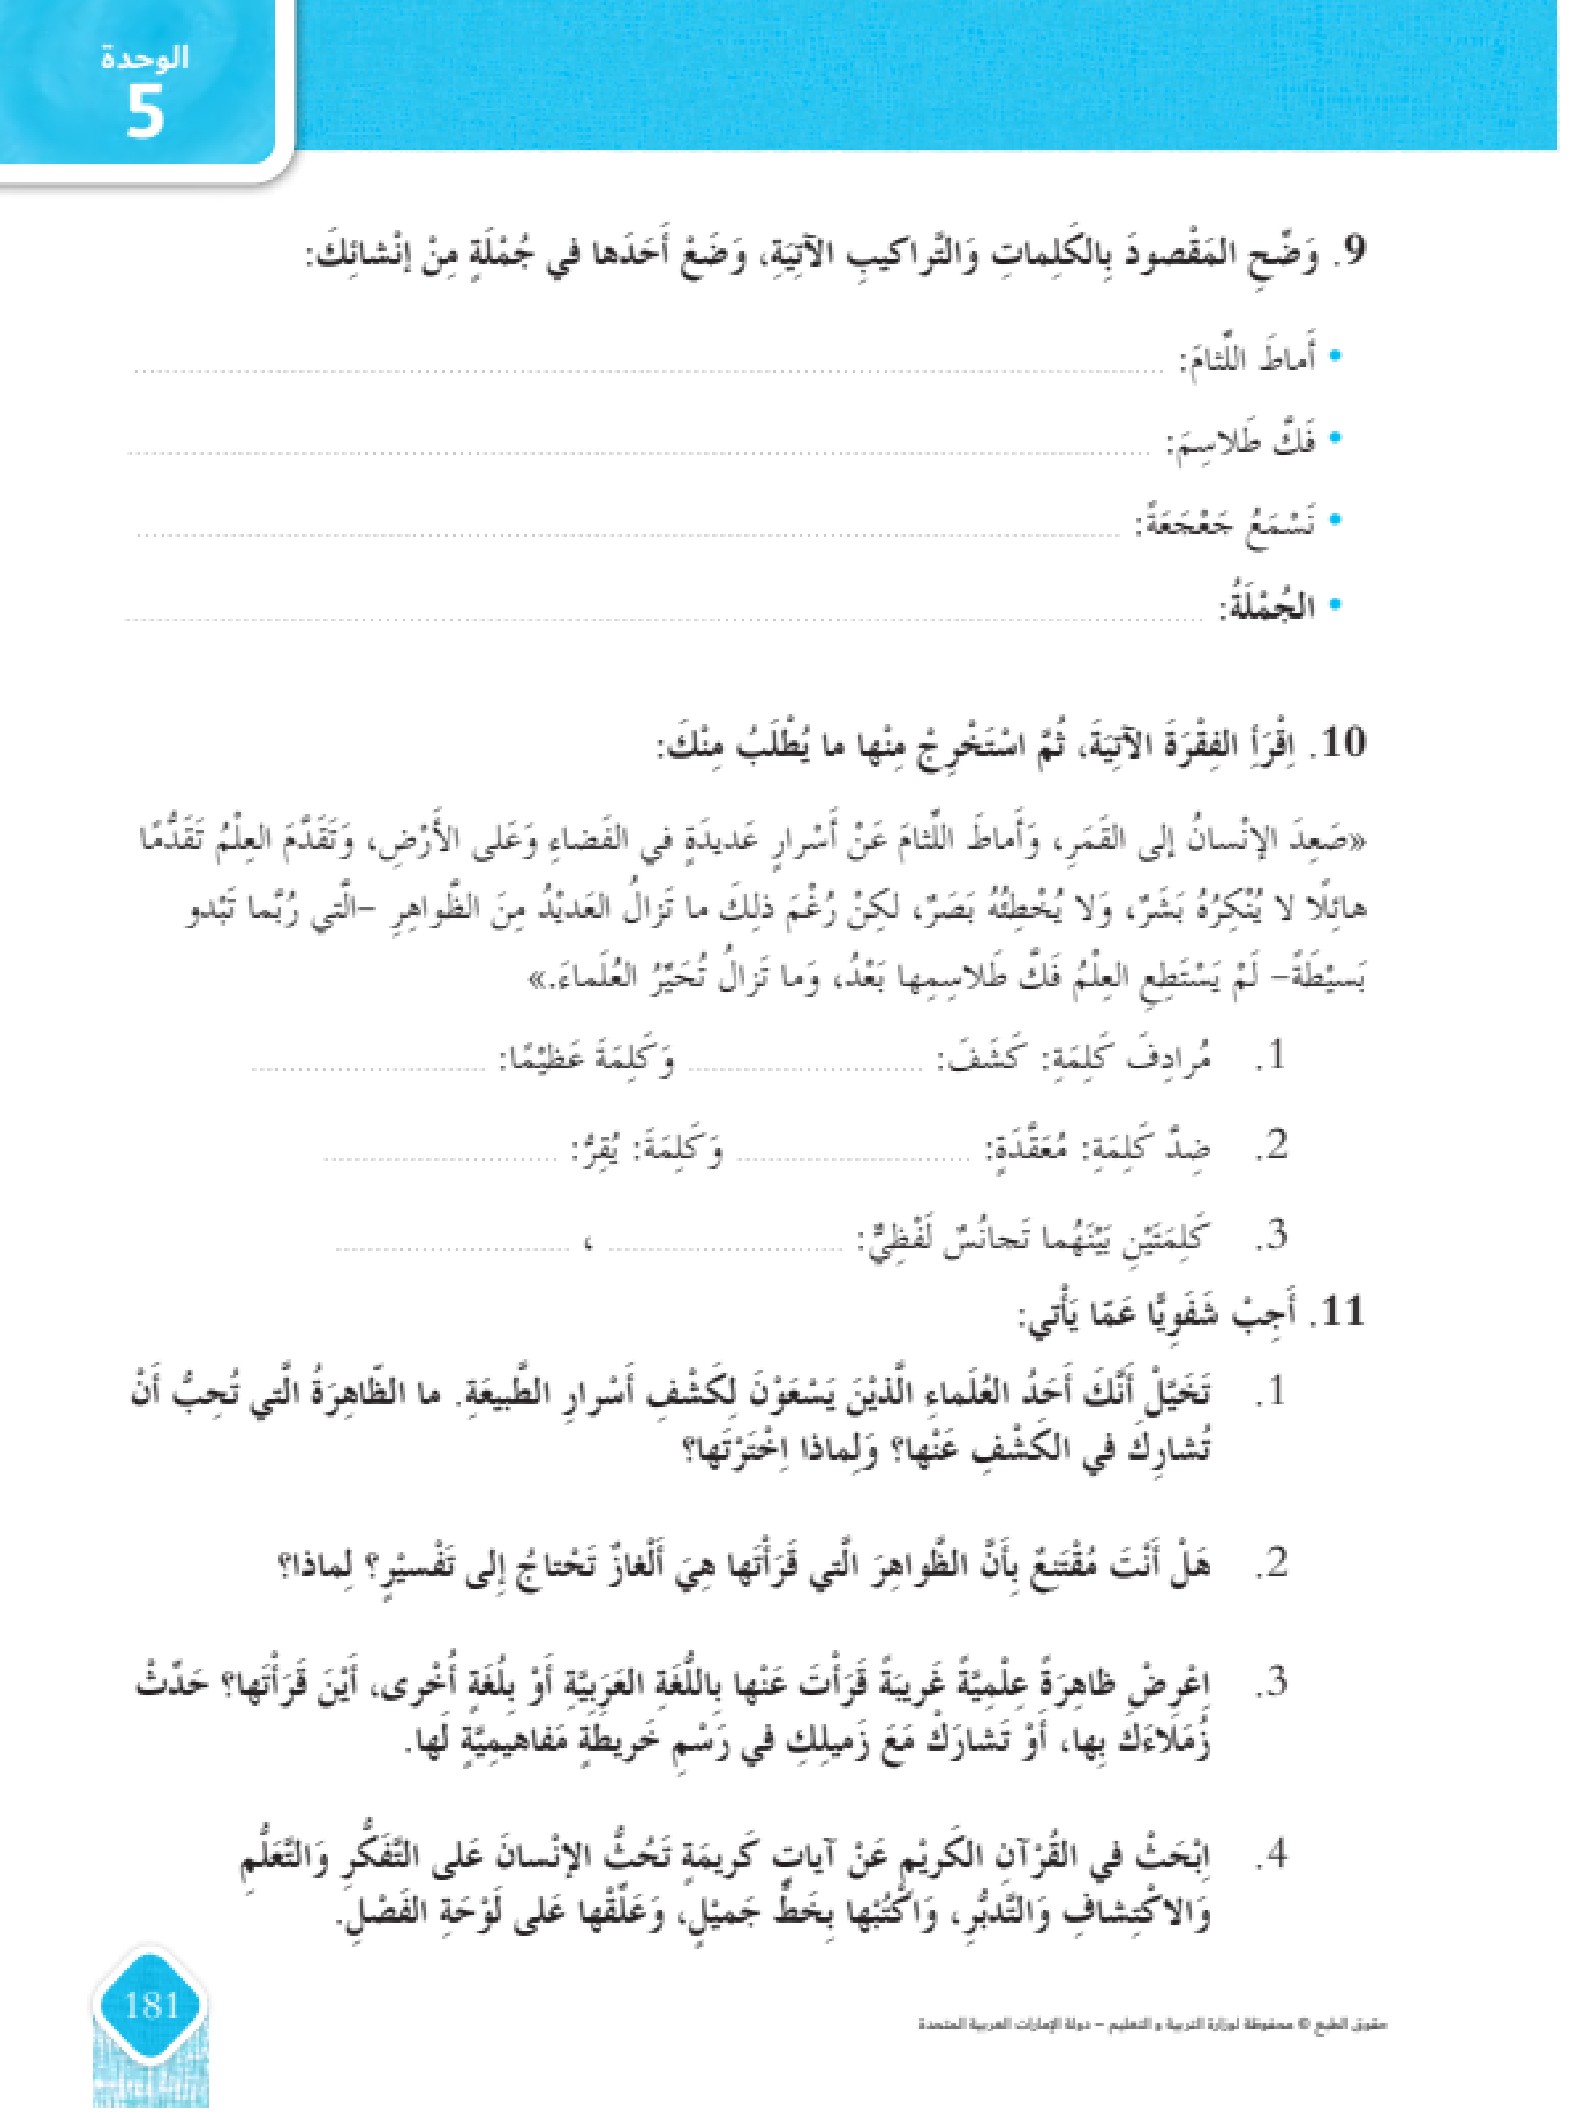 الوحدة
5
9. وَضِّحِ المَقْصودَ بِالكَلِماتِ وَالتَّراكيبِ الآتِيَةِ، وَضَعْ أَحَدَها في جُمْلَةٍ مِنْ إنْشائِكَ:
• أَماطَ اللِّثامَ:
• فَكَّ طَلاسِمَ:
• نَسْمَعُ جَعْجَعَةً:
• الجُمْلَةُ:
10. اِقْرَأِ الفِقْرَةَ الآتِيَةَ، ثُمَّ اسْتَخْرِجْ مِنْها ما يُطْلَبُ مِنْكَ:
«صَعِدَ الإنْسانُ إلى القَمَرِ، وَأَماطَ اللِّثامَ عَنْ أَسْرارٍ عَديدَةٍ في الفَضاءِ وَعَلى الأَرْضِ، وَتَقَدَّمَ العِلْمُ تَقَدُّمًا
هائِلًا لا يُنْكِرُهُ بَشَرٌ، وَلا يُخْطِئُهُ بَصَرٌ، لكِنْ رُغْمَ ذلِكَ ما تَزالُ العَديْدُ مِنَ الظَّواهِرِ –الَّتي رُبَّما تَبْدو
بَسيْطَةً– لَمْ يَسْتَطِعِ العِلْمُ فَكَّ طَلاسِمِها بَعْدُ، وَما تَزالُ تُحَيِّرُ العُلَماءَ.»
1. مُرادِفَ كَلِمَةِ: كَشَفَ: وَكَلِمَةَ عَظيْمًا:
2. ضِدَّ كَلِمَةِ: مُعَقَّدَةٍ: وَكَلِمَةَ: يُقِرُّ:
3. كَلِمَتَيْنِ بَيْنَهُما تَجانُسٌ لَفْظِيٌّ: ،
11. أَجِبْ شَفَوِيًّا عَمّا يَأْتي:
1. تَخَيَّلْ أَنَّكَ أَحَدُ العُلَماءِ الَّذيْنَ يَسْعَوْنَ لِكَشْفِ أَسْرارِ الطَّبيعَةِ. ما الظّاهِرَةُ الَّتي تُحِبُّ أَنْ
تُشارِكَ في الكَشْفِ عَنْها؟ وَلِماذا اِخْتَرْتَها؟
2. هَلْ أَنْتَ مُقْتَنِعٌ بِأَنَّ الظَّواهِرَ الَّتي قَرَأْتَها هِيَ أَلْغازٌ تَحْتاجُ إلى تَفْسيْرٍ؟ لِماذا؟
3. اِعْرِضْ ظاهِرَةً عِلْمِيَّةً غَريبَةً قَرَأْتَ عَنْها بِاللُّغَةِ العَرَبِيَّةِ أَوْ بِلُغَةٍ أُخْرى، أَيْنَ قَرَأْتَها؟ حَدِّثْ
زُمَلاءَكَ بِها، أَوْ تَشارَكْ مَعَ زَميلِكِ في رَسْمِ خَريطَةٍ مَفاهيمِيَّةٍ لَها.
4. اِبْحَثْ في القُرْآنِ الكَريْمِ عَنْ آياتٍ كَريمَةٍ تَحُثُّ الإنْسانَ عَلى التَّفَكُّرِ وَالتَّعَلُّمِ
وَالاكْتِشافِ وَالتَّدبُّرِ، وَاكْتُبْها بِخَطٍّ جَميْلٍ، وَعَلِّقْها عَلى لَوْحَةِ الفَصْلِ.
181
حقوق الطبع © محفوظة لوزارة التربية و التعليم – دولة الإمارات العربية المتحدة